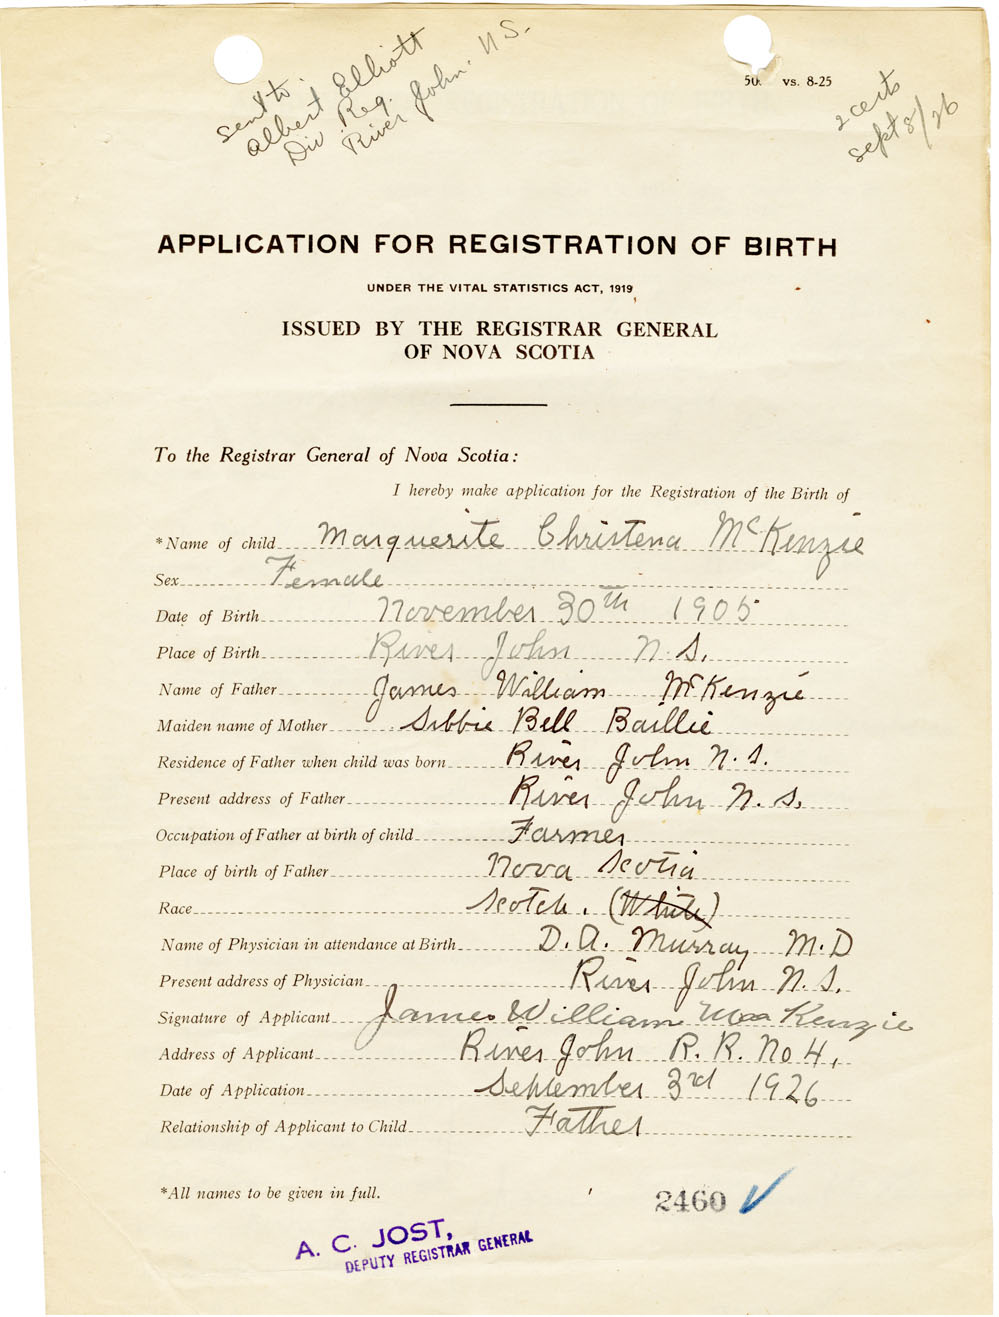 sent to.
Albert Elliott
Div Reg.
River John. N S.
50. vs. 8-25
2 certs
sept 8/26
APPLICATION FOR REGISTRATION OF BIRTH
UNDER THE VITAL STATISTICS ACT, 1919
ISSUED BY THE REGISTRAR GENERAL
OF NOVA SCOTIA
To the Registrar General of Nova Scotia:
I hereby make application for the Registration of the Birth of
*Name of child Marguerite Christena McKenzie
Sex Female
Date of Birth November 30th 1905
Place of Birth River John N. S.
Name of Father James William McKenzie
Maiden name of Mother Sibbie Bell Baillie
Residence of Father when child was born River John N. S.
Present address of Father River John N. S.
Occupation of Father at birth of child Farmer
Place of birth of Father Nova Scotia
Race Scotch. (White)
Name of Physician in attendance at Birth D. A. Murray M. D
Present address of Physician River John N. S.
Signature of Applicant James William MacKenzie
Address of Applicant River John R. R. No 4,
Date of Application September 3rd 1926
Relationship of Applicant to Child Father
*All names to be given in full.
2460
A. C. JOST,
DEPUTY REGISTRAR GENERAL